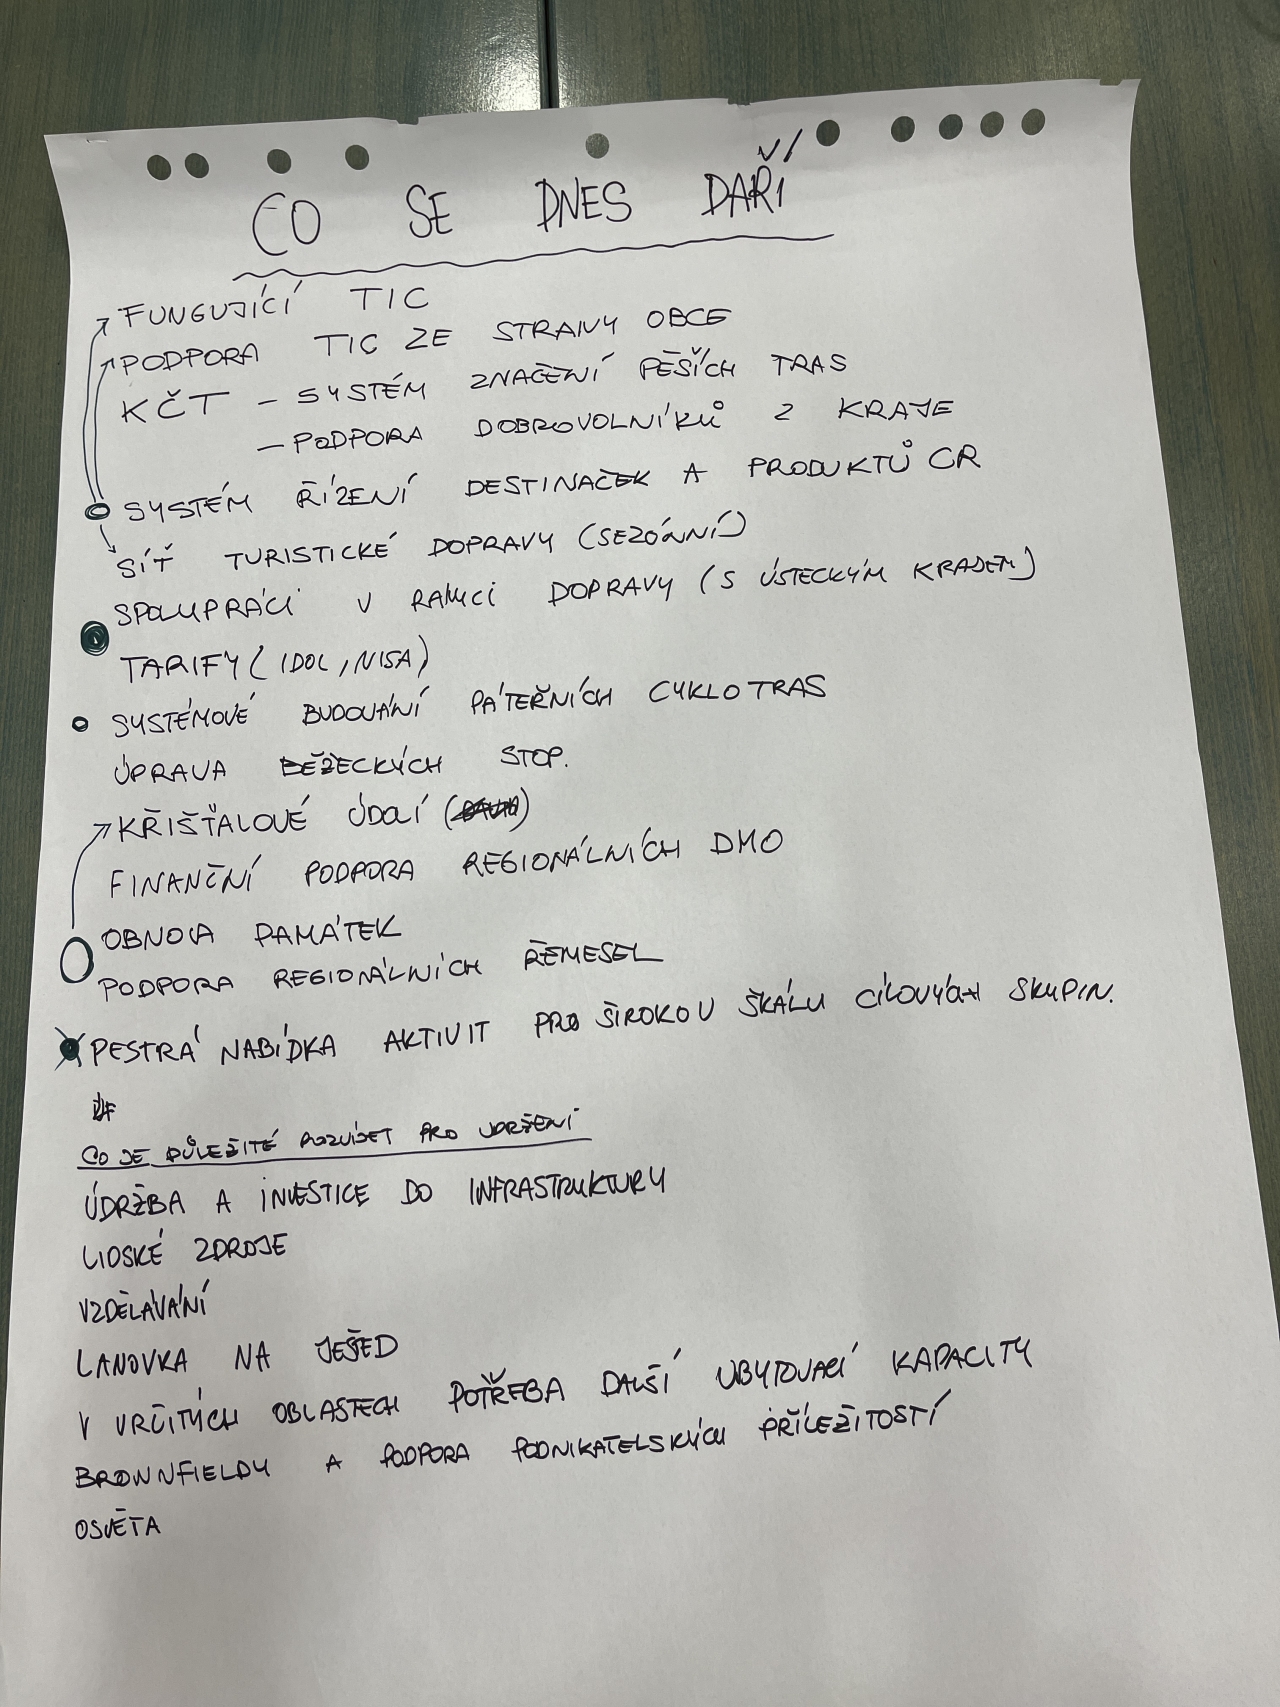 CO SE DNES DAŘÍ
FUNGUJÍCÍ TIC
PODPORA TIC ZE STRANY OBCE
KČT - SYSTÉM ZNAČENÍ PĚŠÍCH TRAS
- PODPORA DOBROVOLNÍKŮ Z KRAJE
SYSTÉM ŘÍZENÍ DESTINAČEK A PRODUKTŮ CR
SÍŤ TURISTICKÉ DOPRAVY (SEZÓNNÍ)
SPOLUPRÁCI V RÁMCI DOPRAVY (S ÚSTECKÝM KRAJEM)
TARIFY (IDOL, NISA)
SYSTÉMOVÉ BUDOVÁNÍ PÁTEŘNÍCH CYKLOTRAS
ÚPRAVA BĚŽECKÝCH STOP.
KŘIŠŤÁLOVÉ ÚDOLÍ
FINANČNÍ PODPORA REGIONÁLNÍCH DMO
OBNOVA PAMÁTEK
PODPORA REGIONÁLNÍCH ŘEMESEL
PESTRÁ NABÍDKA AKTIVIT PRO ŠIROKOU ŠKÁLU CÍLOVÝCH SKUPIN.
CO JE DŮLEŽITÉ ROZVÍJET PRO UDRŽENÍ
ÚDRŽBA A INVESTICE DO INFRASTRUKTURY
LIDSKÉ ZDROJE
VZDĚLÁVÁNÍ
LANOVKA NA JEŠTED
V URČITÝCH OBLASTECH POTŘEBA DALŠÍ UBYTOVACÍ KAPACITY
BROWNFIELDY A PODPORA PODNIKATELSKÝCH PŘÍLEŽITOSTÍ
OSVĚTA